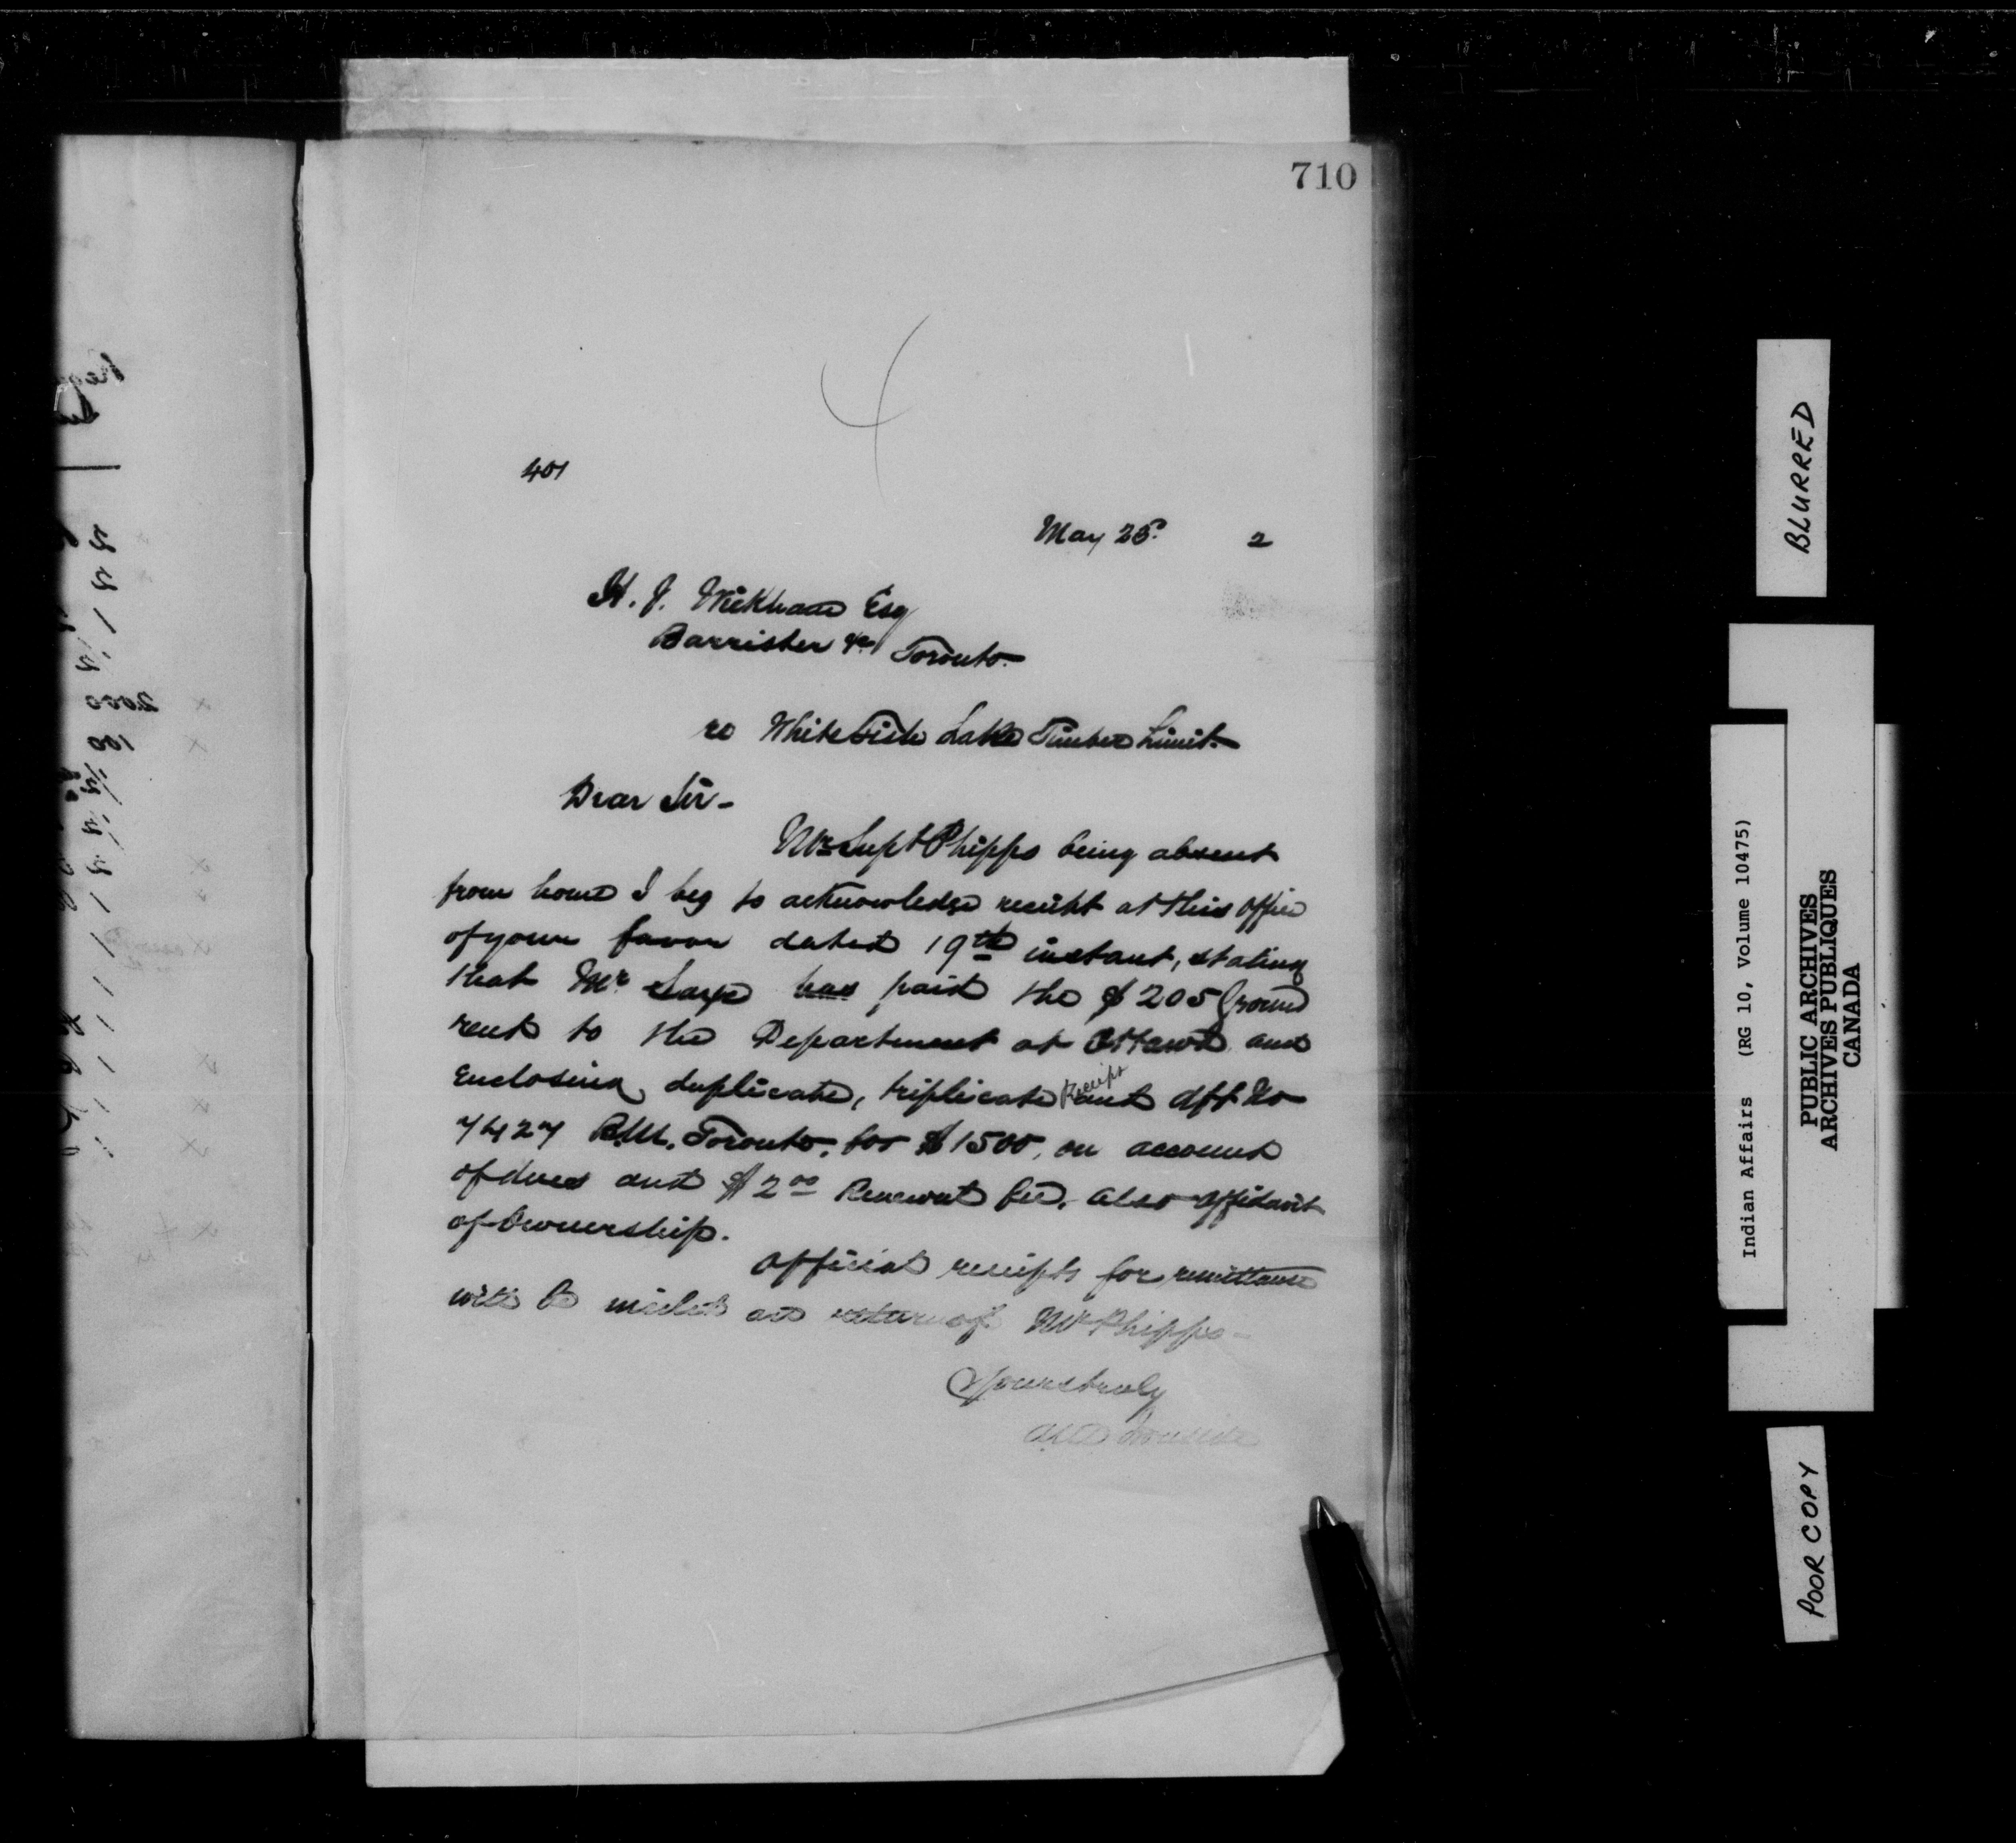 710
4
401
May 25. 2
H. J. Wickham Esq
Barrister &c Toronto.
re Whitefish Lake Timber Limit.
Dear Sir -
Mr Supt Phipps being absent
from home I beg to acknowledge receipt at this Office
of your favor dated 19th instant, stating
that Mr has paid the $205 Ground
rent to the Department at Ottawa and
Enclosing duplicate, triplicate Receipt and dft No
7427 B.M. Toronto. for $1500. on account
of dues and $2.00 Renewal fee. also affidavit
of Ownership.
Official receipts for remittance
will be mailed on return of Mr Phipps -
Yours truly
Ironside
2000
100
BLURRED
Indian Affairs (RG 10, Volume 10475)
PUBLIC ARCHIVES
ARCHIVES PUBLIQUES
CANADA
POOR COPY